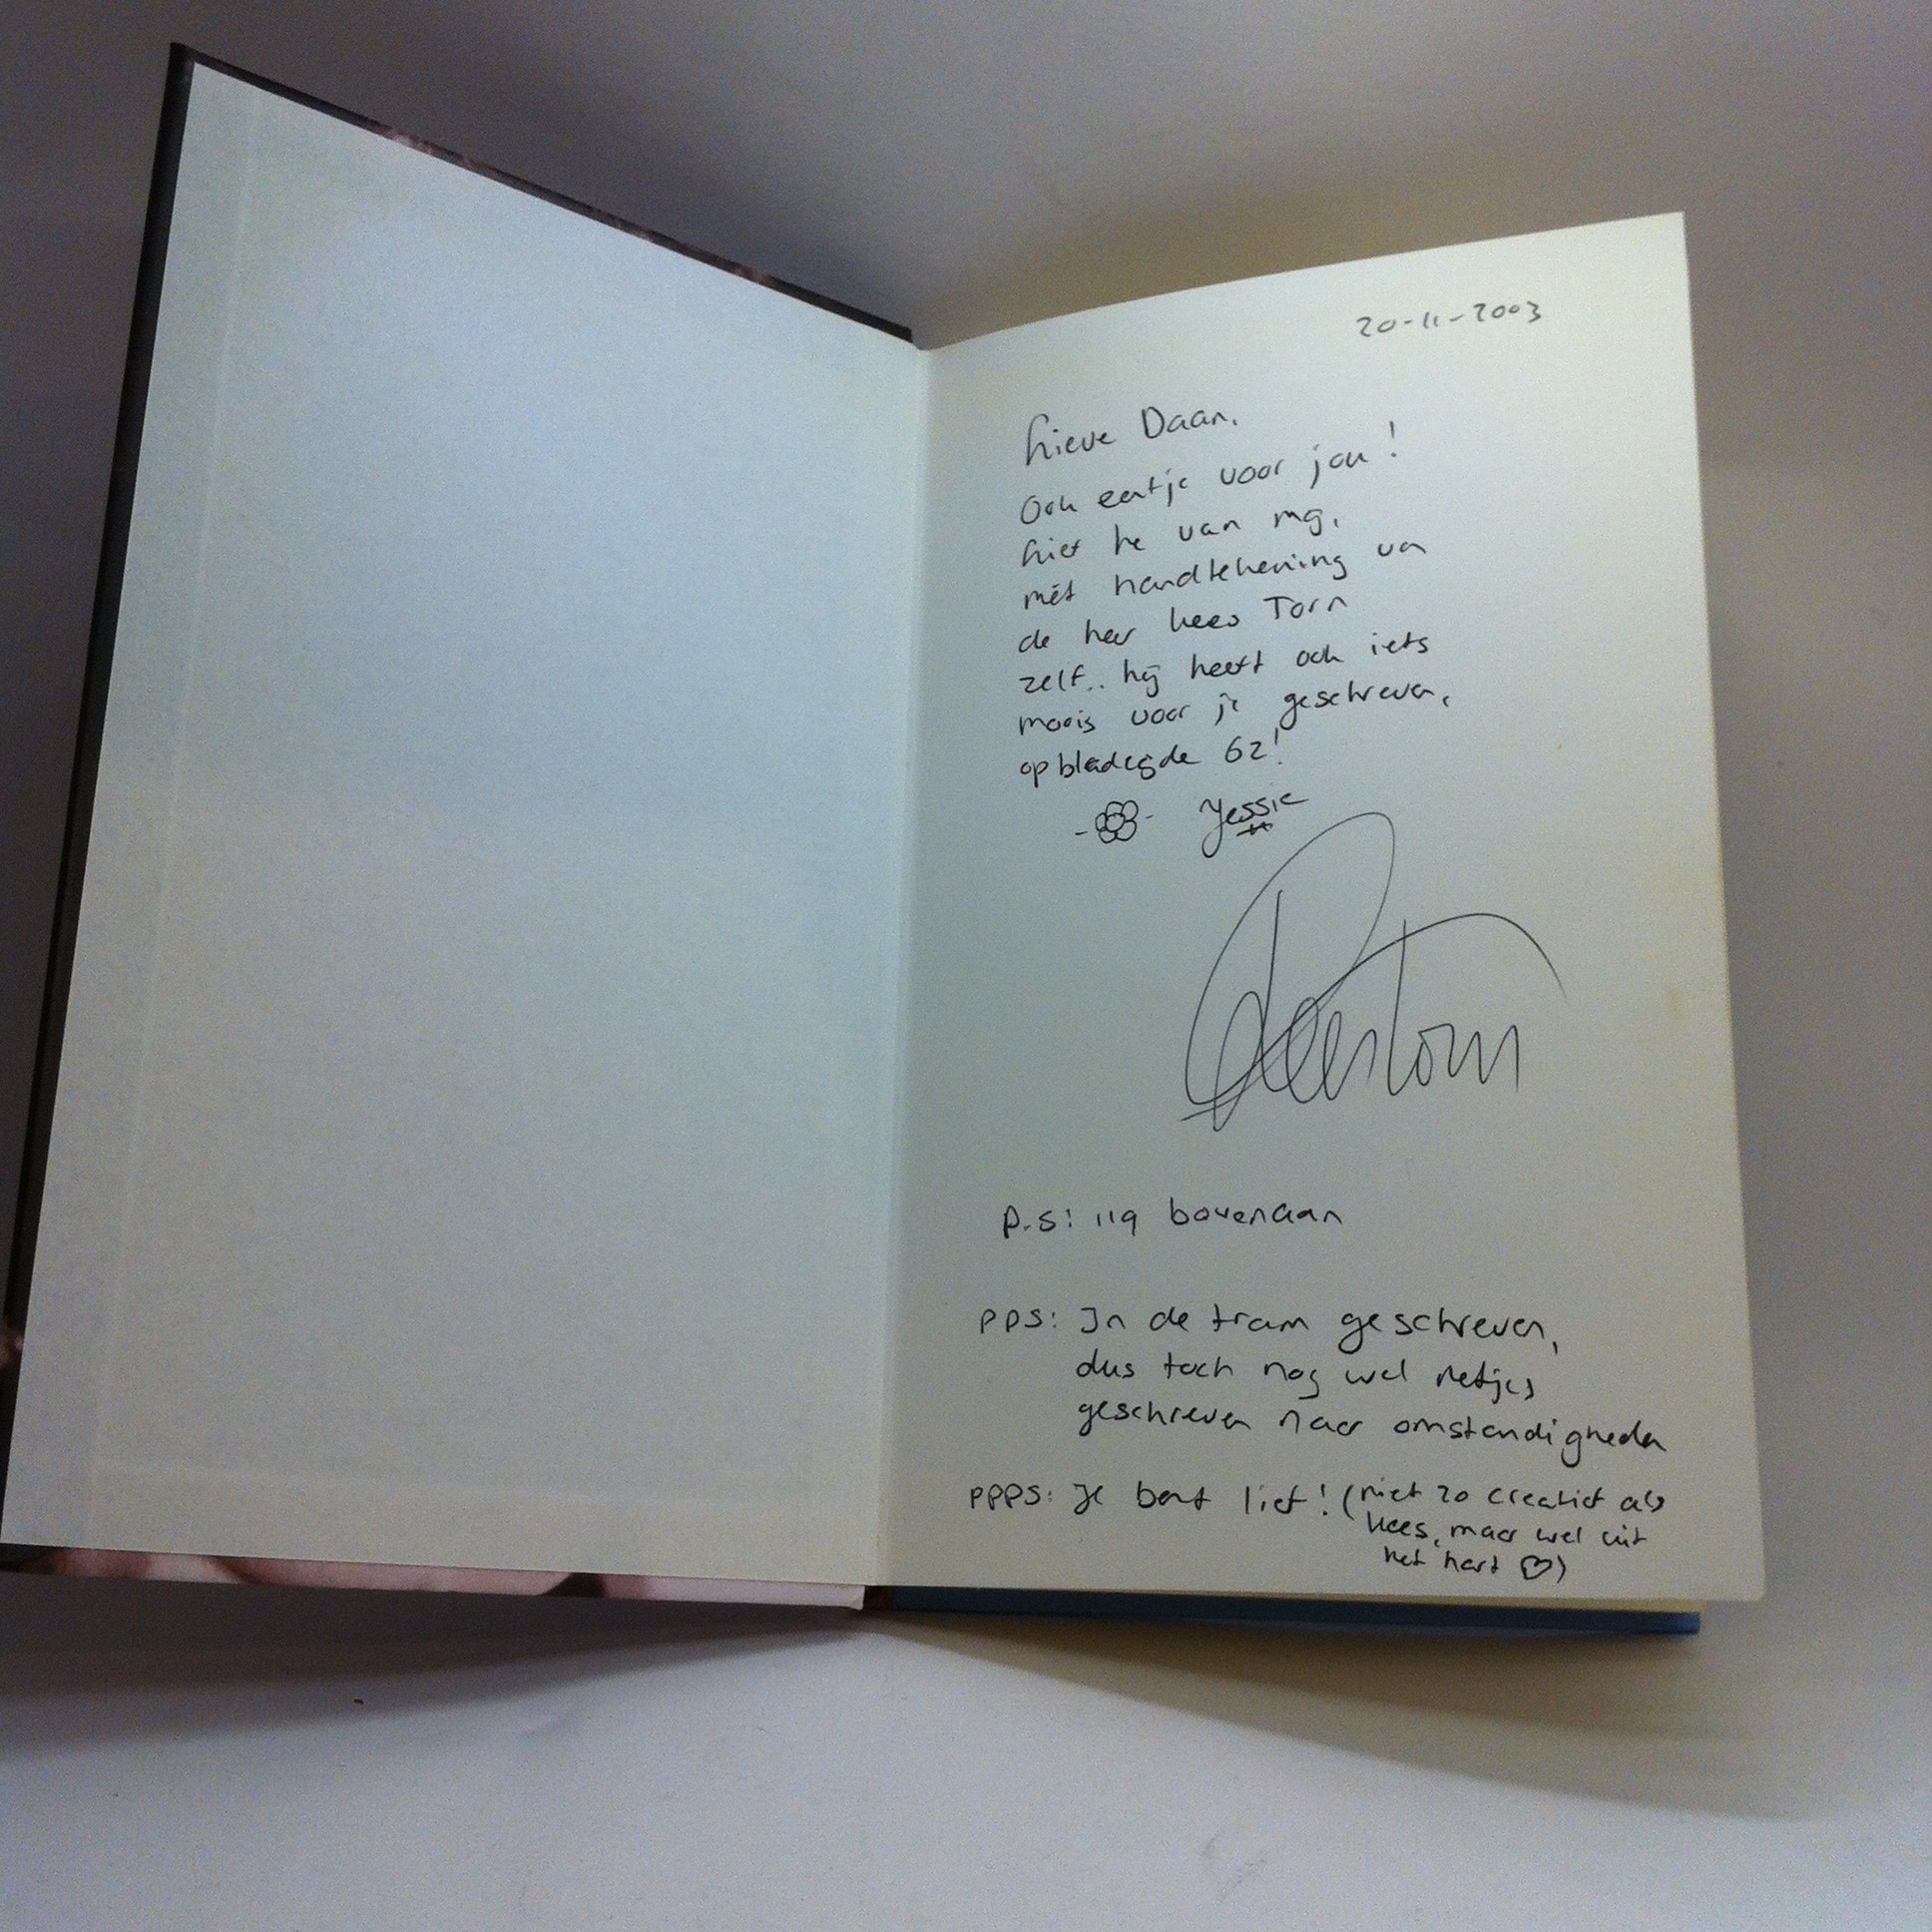 20-11-2003
Lieve Daan,
Ook eentje voor jou!
Liet he van mij,
mét handtekening van
de heer Kees Torn
zelf.. hij heeft ook iets
moois voor je geschreven,
op bladzijde 62!
Jessie
Kees Torn
P.S: 119 bovenaan
PPS: In de tram geschreven,
dus toch nog wel netjes
geschreven naar omstandigheden
PPPS: Je bent lief! (niet zo creatief als
Kees, maar wel uit
het hart ♡)